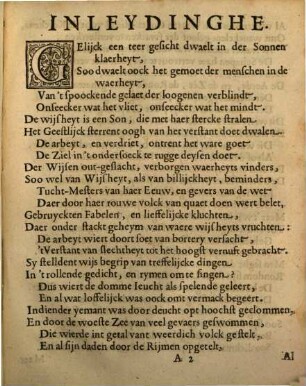 INLEYDINGHE.
GElijck een teer gesicht dwaelt in der Sonnen
klaerheyt,
Soo dwaelt oock het gemoet der menschen in de
waerheyt,
Van 't spoockende gelaet der loogenen verblindt,
Onseecker wat het vliet, onseecker wat het mindt.
De wijsheyt is een Son, die met haer stercke stralen
Het Geestlijck sterrent oogh van het verstant doet dwalen
De arbeyt, en verdriet, ontrent het ware goet
De Ziel in 't ondersoeck te rugge deysen doet.
Der Wijsen out-geslacht, verborgen waerheyts vinders,
Soo wel van Wijsheyt, als van billijckheyt, beminders,
Tucht-Mesters van haer Eeuw, en gevers van de wet
Daer door haer rouwe volck van quaet doen wert belet,
Gebruyckten Fabelen, en lieffelijcke kluchten,
Daer onder stack geheym van waere wijsheyts vruchten:
De arbeyt wiert door soet van bortery versacht,
'tVerstant van slechtheyt tot het hoogst vernuft gebracht.
Sy stelldent wijs begrip van treffelijcke dingen
In 't rollende gedicht, en rymen om te singen?
Dus wiert de domme Ieucht als spelende geleert,
En al wat loffelijck was oock omt vermack begeert.
Indiender yemant was door deucht opt hoochst geclommen,
En door de woeste Zee van veel gevaers geswommen,
Die wierde int getal vant weerdich volck gestelt,
En al sijn daden door de Rijmen opgetelt,
A 2
Al